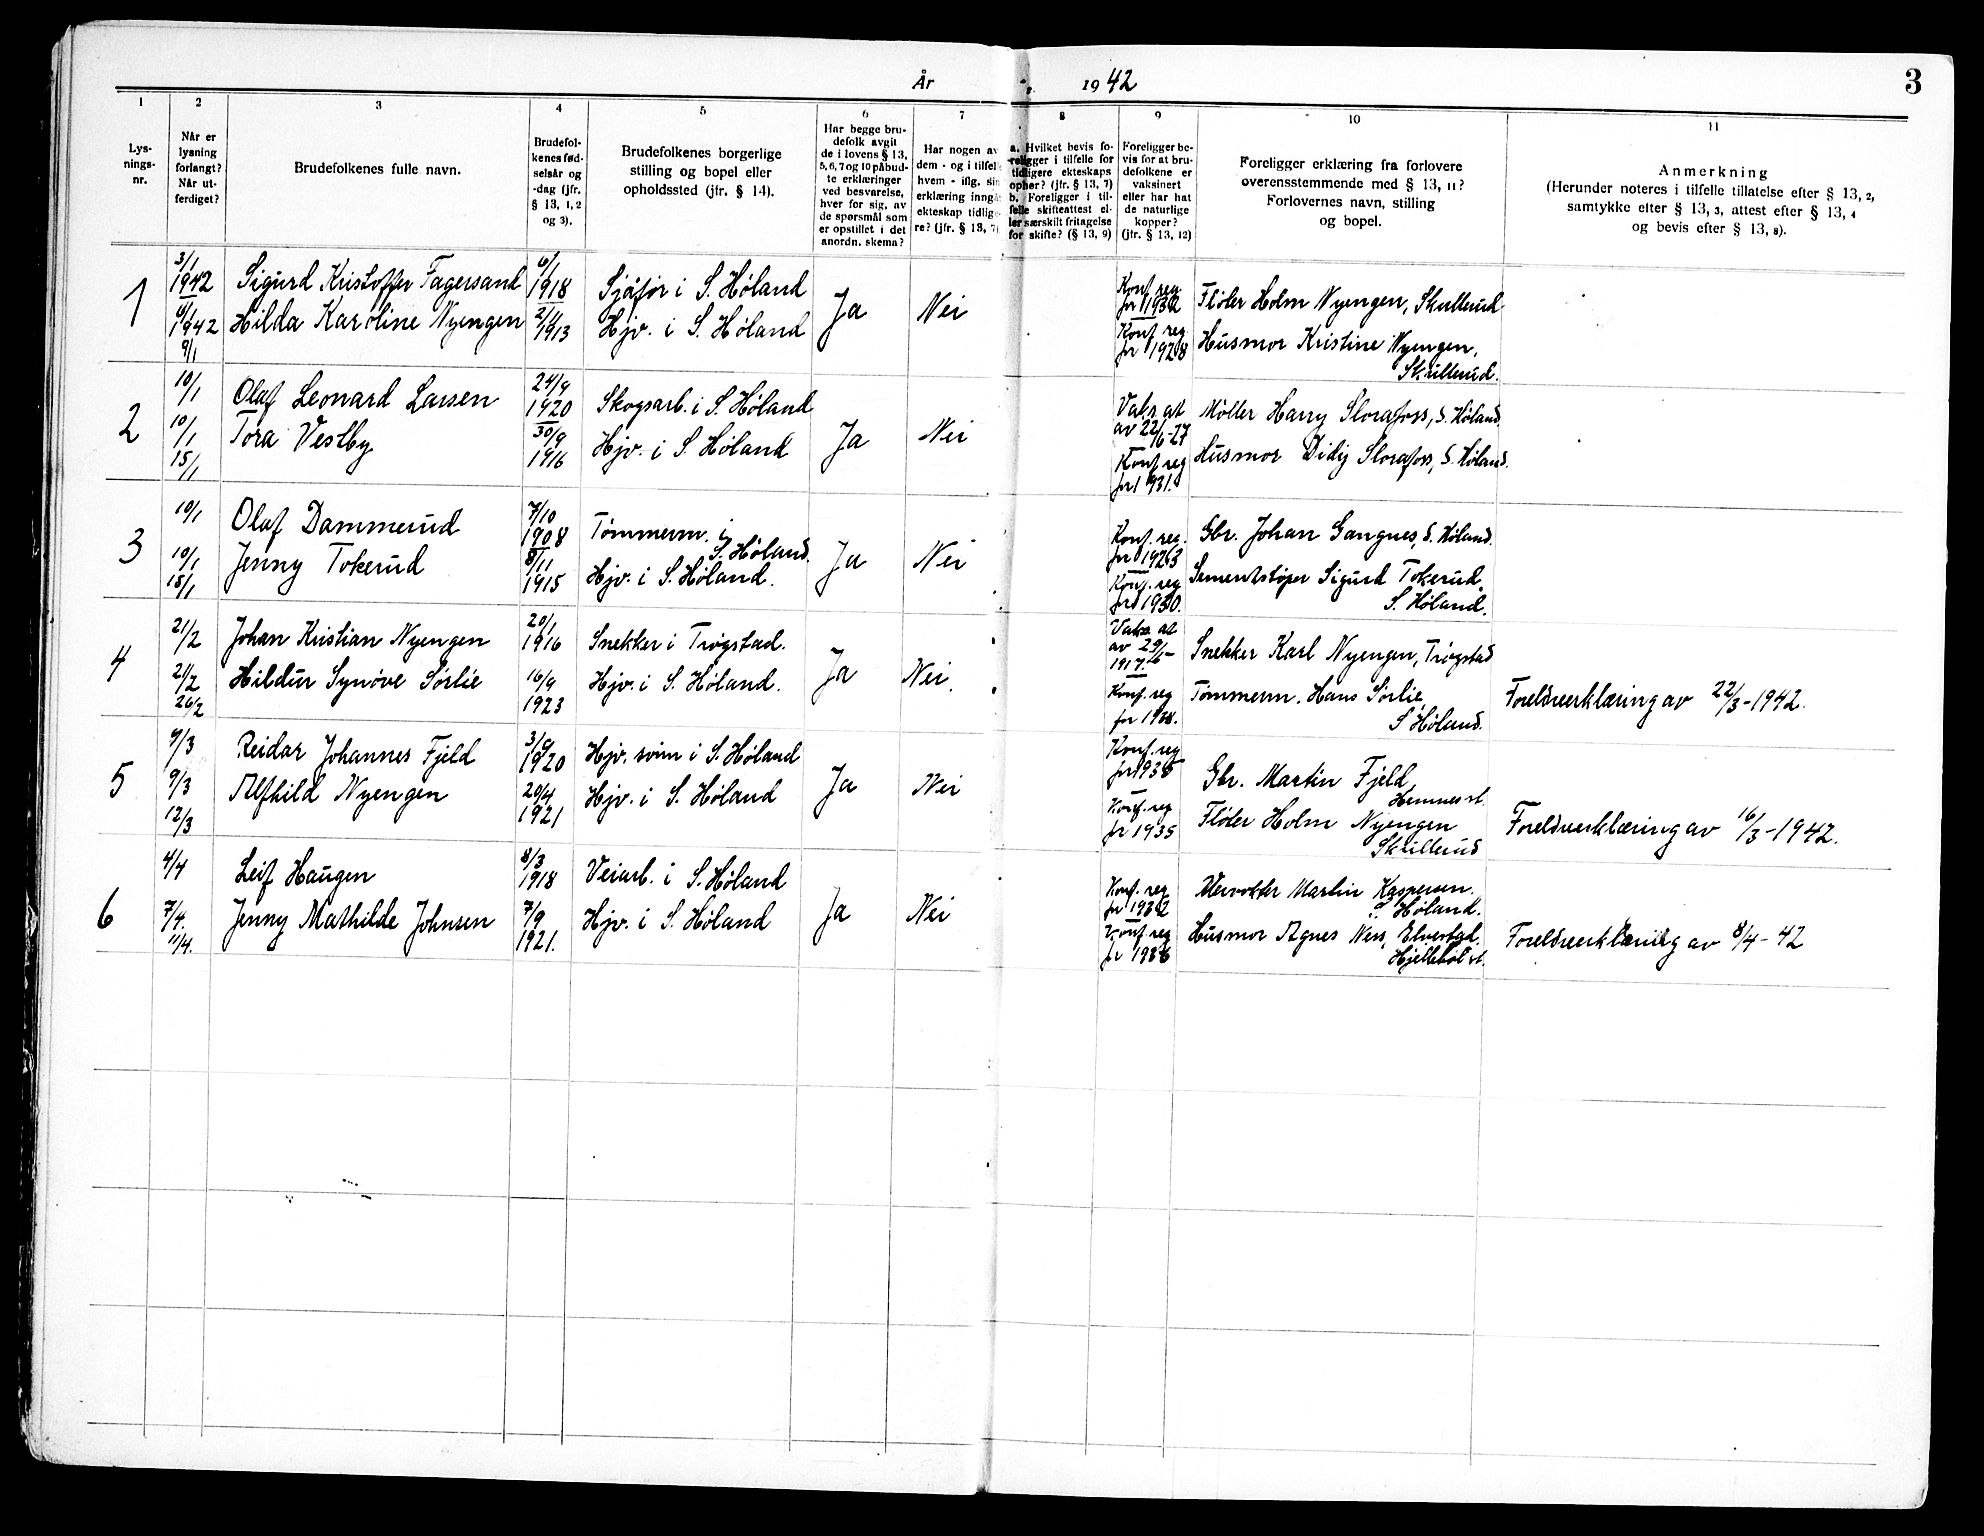 År 1942
3
1 2 3 4 5 6 7 8 9 10 11
Lys-
nings-
nr.
Når er
lysning
forlangt?
Når ut-
ferdiget?
Brudefolkenes fulle navn.
Brudefol-
kenes fød-
selsår og
-dag (jfr.
§ 13, 1, 2
og 3).
Brudefolkenes borgerlige
stilling og bopel eller
opholdssted (jfr. § 14).
Har begge bru-
defolk avgit
de i lovens § 13,
5, 6, 7 og 10 påbud-
te erklæringer
ved besvarelse,
hver for sig, av
de spørsmål som
er opstillet i det
anordn. skema?
Har nogen av
dem - og i tilfelle
hvem - iflg. sin
erklæring inngå
ekteskap tidlige-
re? (jfr. § 13, 7)
a. Hvilket bevis fo-
religger i tilfelle for
tidligere ekteskaps
ophør? (jfr. § 13, 7)
b. Foreligger i til-
felle skifteattest el-
ler særskilt fritagelse
for skifte? (§ 13, 9)
Foreligger be-
vis for at bru-
defolkene er
vaksinert
eller har hat
de naturlige
kopper?
(jfr. § 13, 12)
Foreligger erklæring fra forlovere
overensstemmende med § 13, 11?
Forlovernes navn, stilling
og bopel.
Anmerkning
(Herunder noteres i tilfelle tillatelse efter § 13, 2,
samtykke efter § 13, 3, attest efter § 13, 4
og bevis efter § 13, 8).
1
3/1
1942
6/1
1942
9/1
Sigurd Kristoffer Fagersand
Hilda Karoline Nyengen
6/1
1918
2/11
1913
Sjåfør i S. Høland
Hjv. i S. Høland
Ja
Nei
Konf. reg
for 1932
Konf. reg
for 1928
Fløter Holm Nyengen, Skullerud
Husmor Kristine Nyengen,
Skullerud.
2
10/1
10/1
15/1
Olaf Leonard Larsen
Tora Vestby
24/9
1920
30/9
1916
Skogsarb. i S. Høland
Hjv. i S. Høland
Ja
Nei
Vaks at
av 22/6-27
Konf. reg
for 1931.
Møller Harry Slorafoss, S. Høland
Husmor Didij Slorafoss, S. Høland.
3
10/1
10/1
15/1
Olaf Dammerud
Jenny Tokerud
7/10
1908
8/11
1915
Tømmerm. i
S. Høland.
Hjv. i S. Høland.
Ja
Nei
Konf. reg.
for 1923
Konf. reg
for 1930.
Gbr. Johan Gangnes, S. Høland.
Sementstøper Sigurd Tokerud,
S. Høland.
4
21/2
21/2
26/2
Johan Kristian Nyengen
Hildur Synøve Sørlie
20/1
1916
16/9
1923
Snekker i Trøgstad.
Hjv. i S. Høland.
Ja
Nei.
Vaks at
av 29/6-
1917.
Konf. reg
for 1938.
Snekker Karl Nyengen, Trøgstad
Tømmerm. Hans Sørlie,
S Høland.
Foreldreerklæring av 22/3-1942.
5
9/3
9/3
12/3
Reidar Johannes Fjeld
Alfhild Nyengen
3/6
1920
20/4
1921
Hjv. sønn i S. Høland
Hjv. i S. Høland
Ja
Nei
Konf. reg
for 1935
Konf. reg
for 1935
Gbr. Martin Fjeld,
Hemnes st.
Fløter Holm Nyengen
Skullerud
Foreldreerklæring av 16/3-1942.
6
4/4
7/4.
11/4.
Leif Haugen
Jenny Mathilde Johnsen
8/3
1918
7/9
1921.
Veiarb. i S. Høland
Hjv. i S. Høland
Ja
Nei
Konf. reg
for 1932
Konf. reg
for 1936
Veivokter Martin Kaspersen.
S. Høland.
Husmor Agnes Ness, Elvestad.
Hjellebøl st.
Foreldreerklæring av 8/4-42